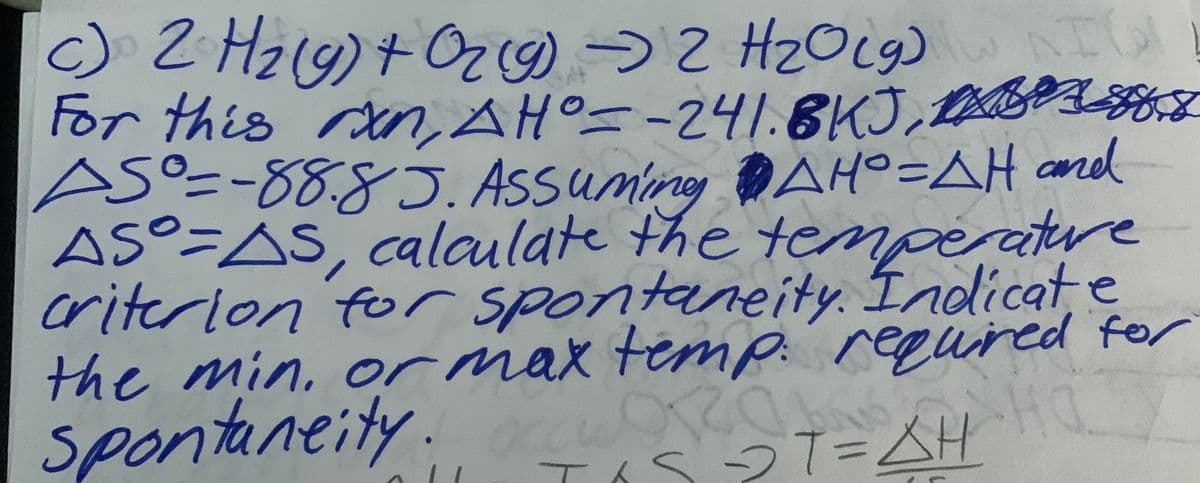 c) 2 H₂(g) + O₂(g) → 2 H₂O(g)
For this rxn, ΔH°= -241.8KJ,
ΔS°=-88.8J. Assuming ΔH°=ΔH and
ΔS°=ΔS, calculate the temperature
criterion for spontaneity. Indicate
the min. or max temp. required for
spontaneity.
→ T=ΔH